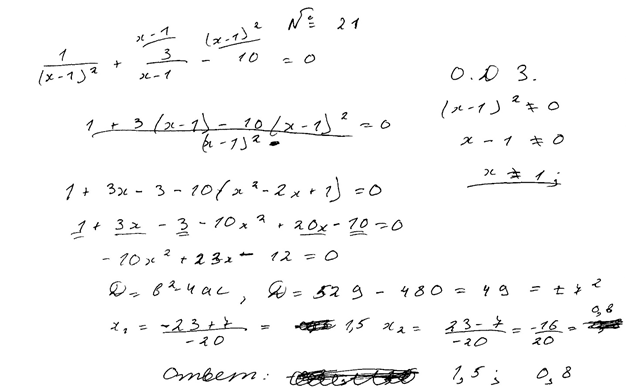 № 21
1/(x-1)² + 3/(x-1) - 10 = 0
x-1 (x-1)²
О.D З.
(x-1)² ≠ 0
x - 1 ≠ 0
x ≠ 1;
(1 + 3(x-1) - 10(x-1)²)/(x-1)² = 0
1 + 3x - 3 - 10(x² - 2x + 1) = 0
1 + 3x - 3 - 10x² + 20x - 10 = 0
-10x² + 23x - 12 = 0
D = b² - 4ac, D = 529 - 480 = 49 = ±7²
x₁ = (-23+7)/(-20) = 1,5 x₂ = (23-7)/(-20) = (-16)/20 = 0,8
Ответ: 1,5; 0,8